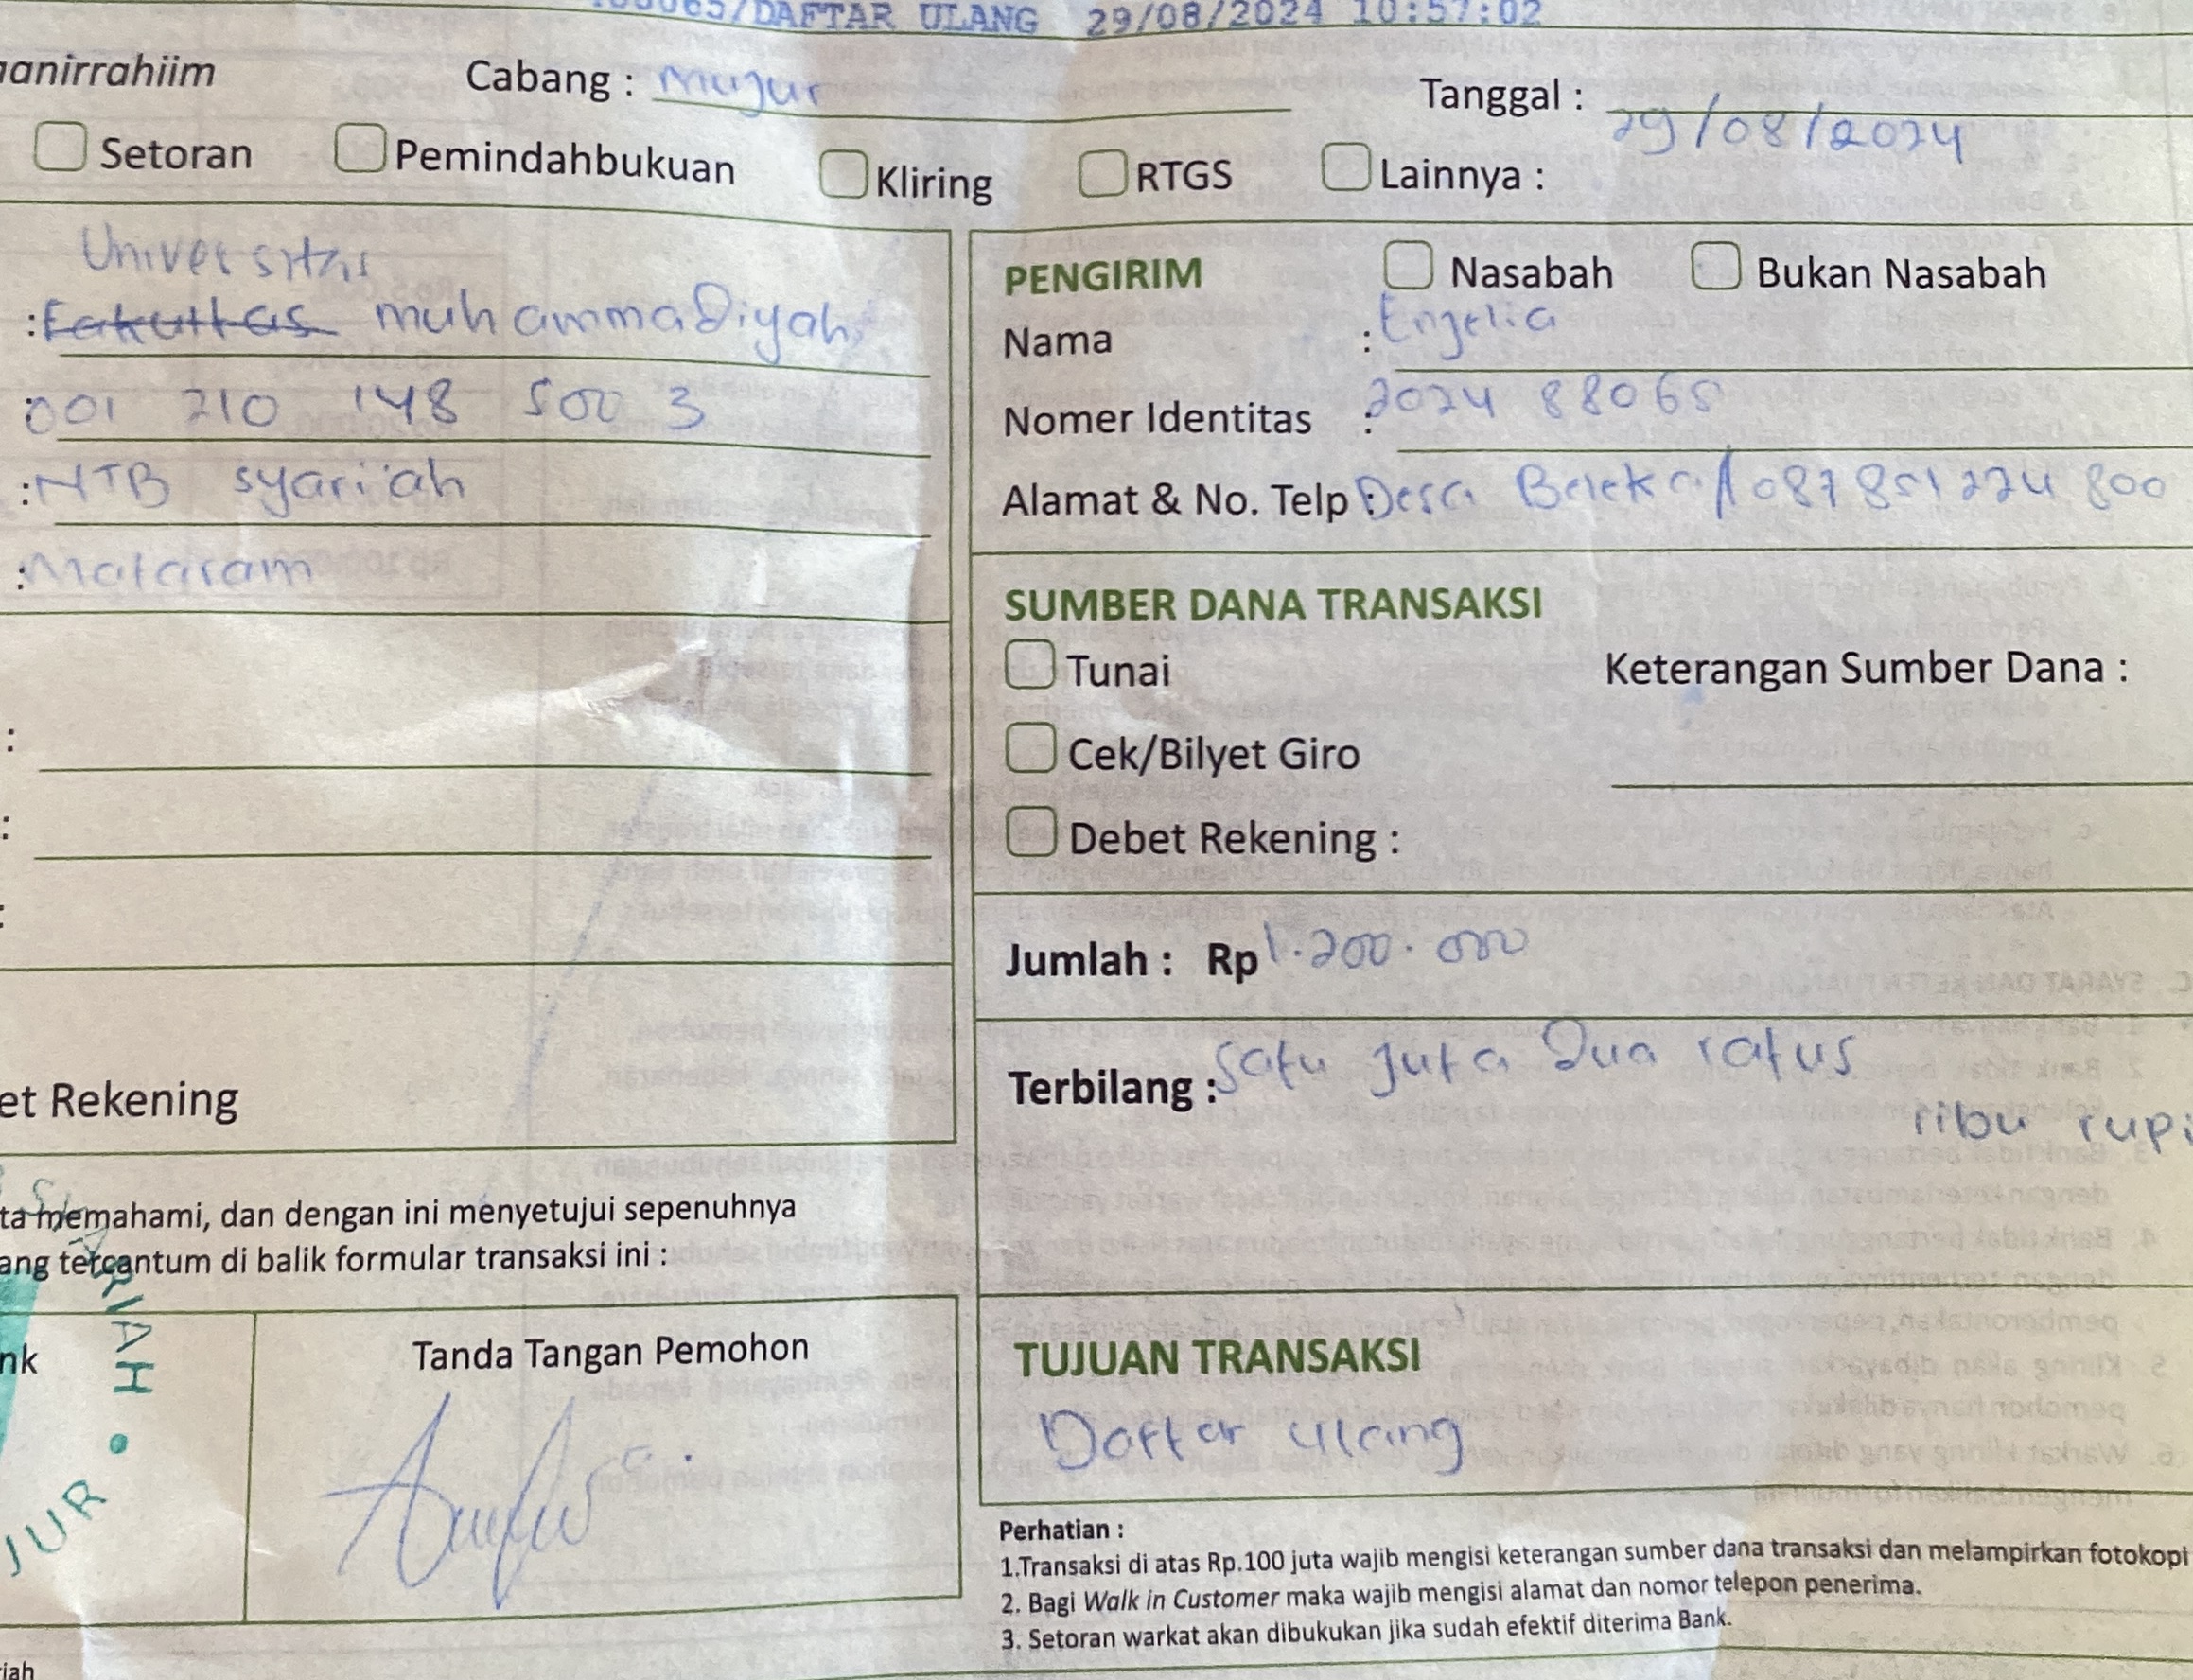 /DAFTAR ULANG 29/08/2024 10:57:02
anirrahiim
Cabang : Mujur
Tanggal : 29/08/2024
Setoran Pemindahbukuan Kliring RTGS Lainnya :
Universitas
: Fakultas muhammadiyah
: 001 210 148 500 3
: NTB syari'ah
: Mataram
:
:
:
et Rekening
ta memahami, dan dengan ini menyetujui sepenuhnya
ang tercantum di balik formular transaksi ini :
nk
Tanda Tangan Pemohon
RIAH • JUR
iah
PENGIRIM Nasabah Bukan Nasabah
Nama : Engelia
Nomer Identitas : 2024 88065
Alamat & No. Telp : Desa Beleka / 087 851 224 800
SUMBER DANA TRANSAKSI
Tunai Keterangan Sumber Dana :
Cek/Bilyet Giro
Debet Rekening :
Jumlah : Rp 1.200.000
Terbilang : Satu juta Dua ratus
ribu rupi
TUJUAN TRANSAKSI
Daftar ulang
Perhatian :
1.Transaksi di atas Rp.100 juta wajib mengisi keterangan sumber dana transaksi dan melampirkan fotokopi
2. Bagi Walk in Customer maka wajib mengisi alamat dan nomor telepon penerima.
3. Setoran warkat akan dibukukan jika sudah efektif diterima Bank.